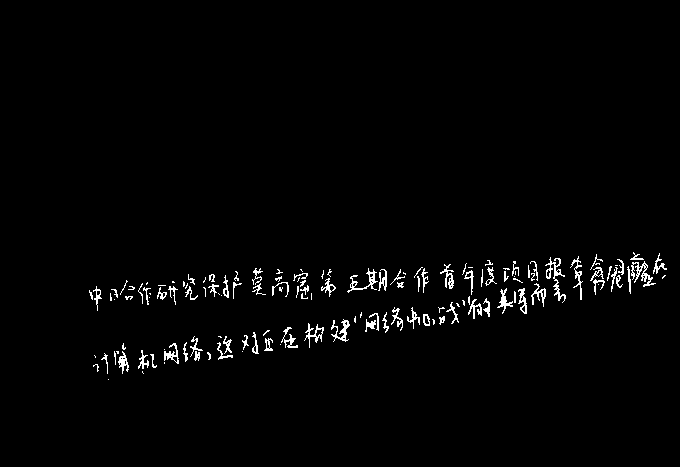 中日合作研究保护莫高窟第五期合作首年度项目报
计算机网络,这对正在构建“网络中心战”的美军而言